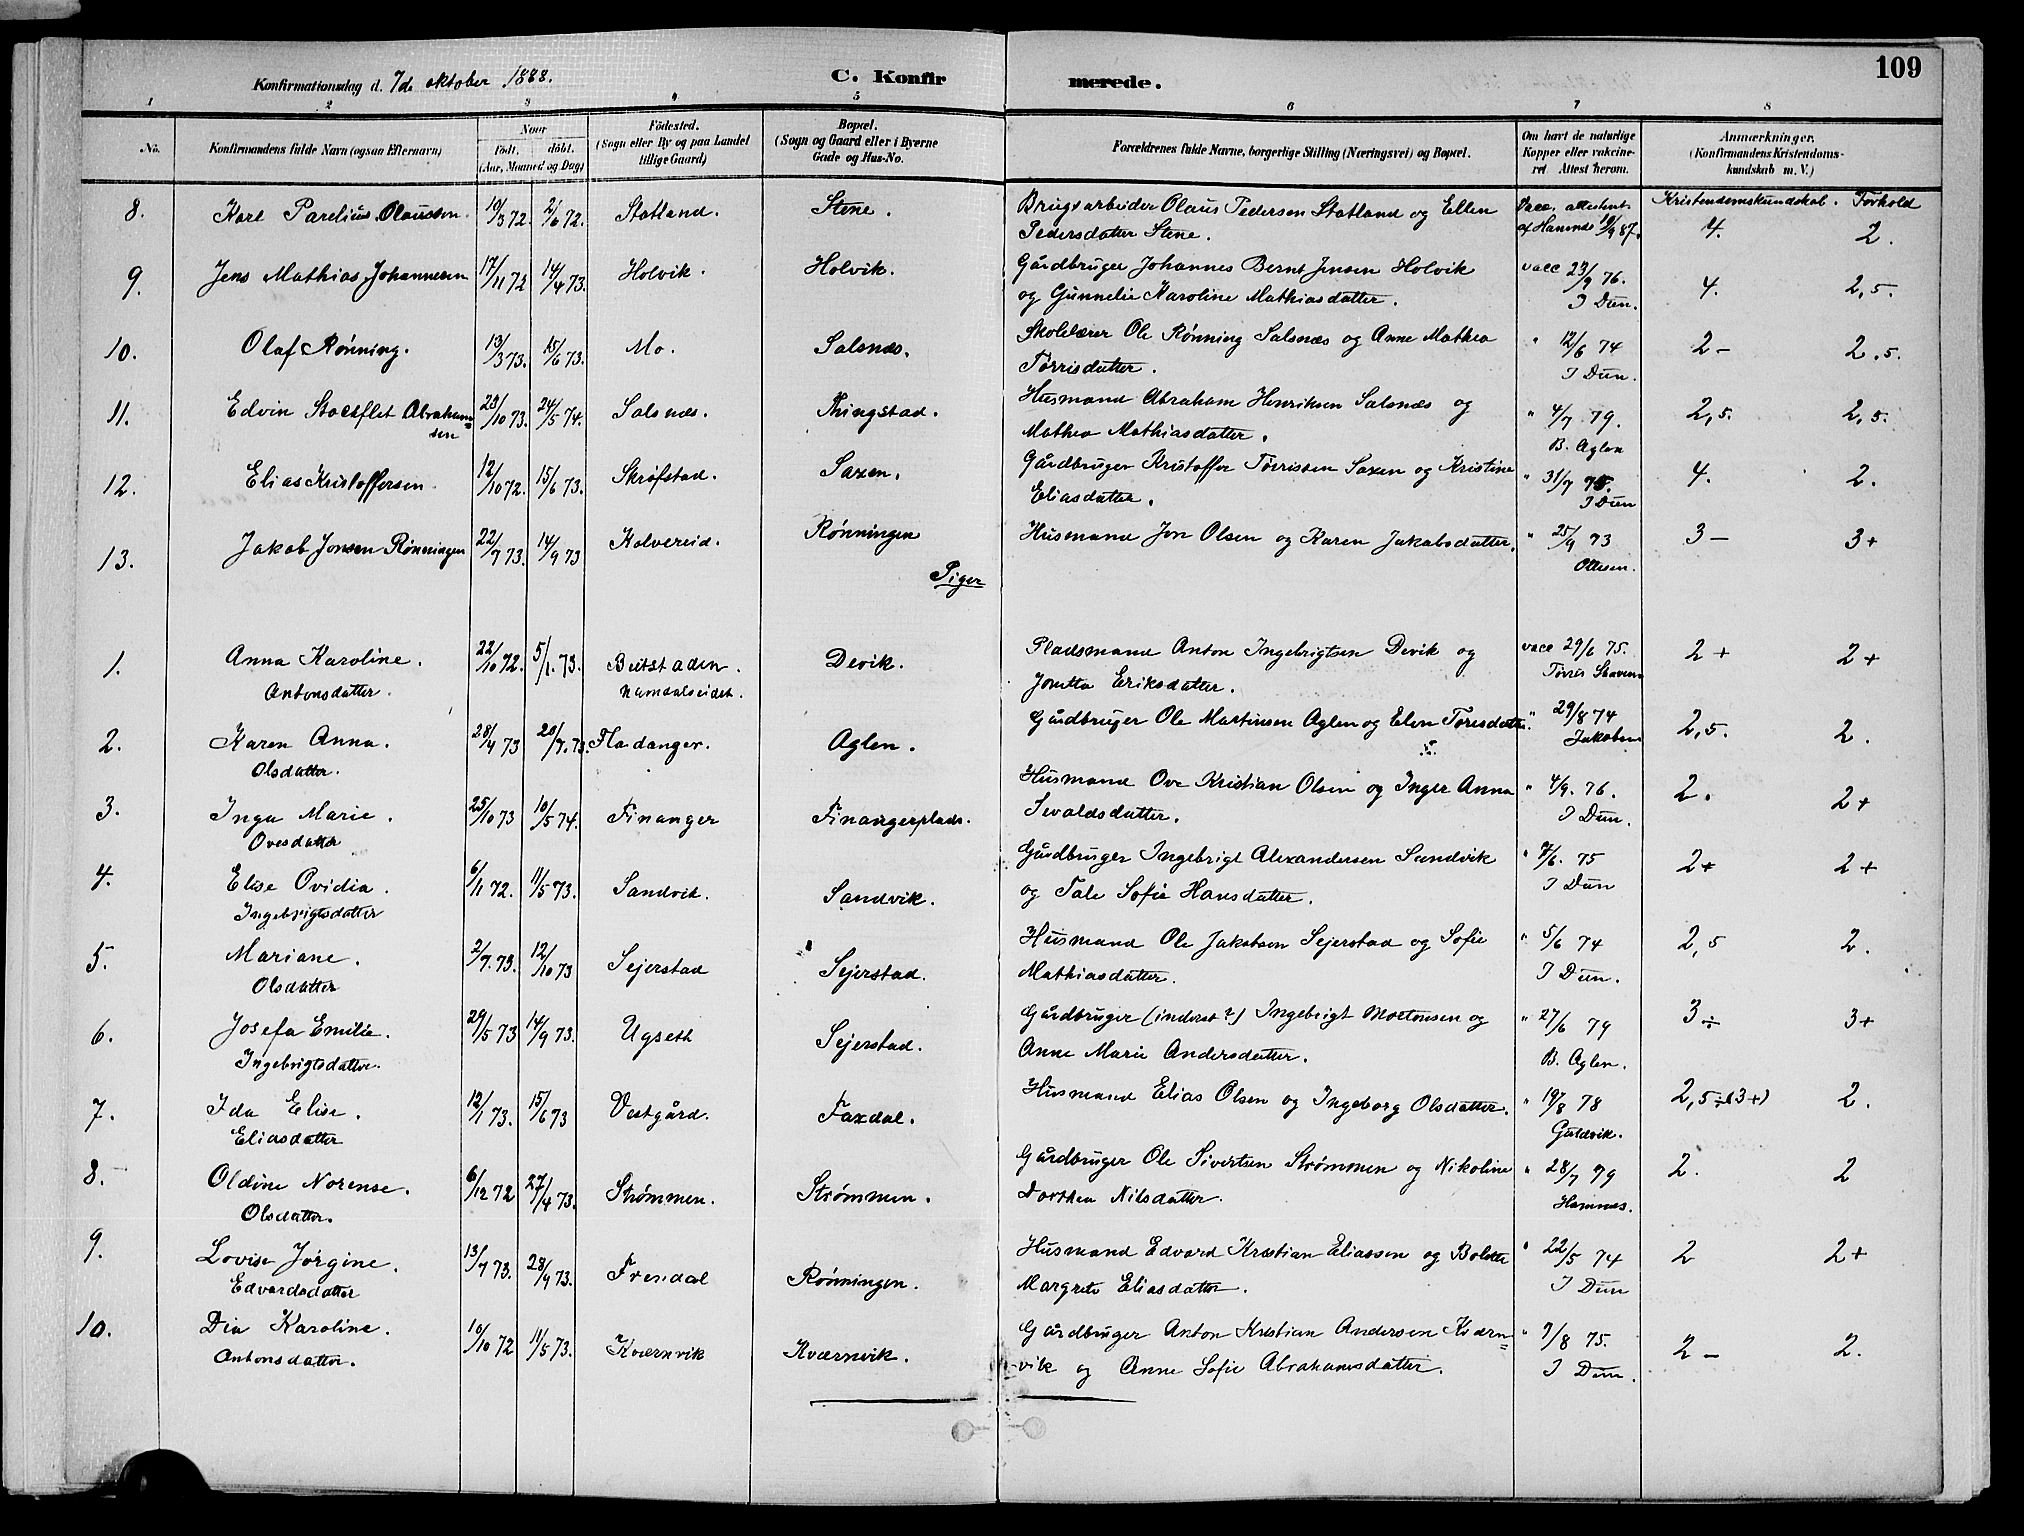 109
Konfirmationsdag d. 7de oktober 1888. C. Konfirmerede.
1 2 3 4 5 6 7 8
No. Konfirmandens fulde Navn (ogsaa Efternavn) Naar født, døbt. (Aar, Maaned og Dag) Fødested. (Sogn eller By og paa Landet tillige Gaard) Bopæl. (Sogn og Gaard eller i Byerne Gade og Hus-No. Forældrenes fulde Navne, borgerlige Stilling (Næringsvei) og Bopæl. Om havt de naturlige Kopper eller vakcineret Attest herom. Anmærkninger. (Konfirmandens Kristendomskundskab m. V.)
Kristendomskundskab. Forhold
8. Karl Parelius Olaussen. 10/3 72. 2/6 72. Statland. Stene. Brugsarbeider Olaus Pedersen Statland og Ellen
Pedersdatter Stene. Vacc. attesteret af Hamnes 10/9 87. 4. 2.
9. Jens Mathias Johannesen 17/11 72 14/4 73. Holvik. Holvik. Gårdbruger Johannes Bernt Jensen Holvik
og Gunnelie Karoline Mathiasdatter. vacc 23/9 76. I Dun. 4. 2,5.
10. Olaf Rønning. 13/3 73. 15/6 73. Mo. Salsnæs. Skolelærer Ole Rønning Salsnæs og Anne Mathea
Tørrisdatter. " 12/6 74 I Dun. 2- 2,5.
11. Edvin Stockflet Abrahamsen 23/10 73. 24/5 74. Salsnæs. Thingstad. Husmand Abraham Henriksen Salsnæs og
Mathea Mathiasdatter. " 4/7 79. B. Aglen 2,5. 2,5.
12. Elias Kristoffersen. 12/10 72. 15/6 73. Skrøfstad. Saxen. Gårdbruger Kristoffer Tørrissen Saxen og Kristine
Eliasdatter. " 31/7 75. I Dun 4. 2.
13. Jakob Jonsen Rønningen 22/7 73. 14/9 73 Kolvereid. Rønningen Husmand Jon Olsen og Karen Jakobsdatter. " 25/9 73 Ottesen. 3- 3+
Piger
1. Anna Karoline. 22/10 72. 5/1. 73. Beitstaden. Devik. Pladsmand Anton Ingebrigtsen Devik og vacc 29/6 75. 2+ 2+
Antonsdatter. Namdalseidet. Jonetta Eriksdatter. Tørris Stavern
2. Karen Anna. 28/4 73 20/7. 73. Fladanger. Aglen. Gårdbruger Ole Martinsen Aglen og Elen Toresdatter. " 29/8 74 2,5. 2.
Olsdatter. Jakobsen
3. Inga Marie. 25/10 73 10/5 74. Finanger Finangerplads. Husmand Ove Kristian Olsen og Inger Anna " 4/9. 76. 2. 2+
Ovesdatter Sevaldsdatter. I Dun.
4. Elise Ovidia. 6/11 72. 11/5 73. Sandvik. Sandvik. Gårdbruger Ingebrigt Alexandersen Sandvik " 7/6. 75 2+ 2+
Ingebrigtsdatter og Tale Sofie Hansdatter. I Dun
5. Mariane. 2/7. 73. 12/10 73 Sejerstad Sejerstad. Husmand Ole Jakobsen Sejerstad og Sofie " 5/6 74 2,5 2.
Olsdatter Mathiasdatter. I Dun.
6. Josefa Emilie. 29/5 73 14/9 73. Ugseth Sejerstad. Gårdbruger (inderst?) Ingebrigt Mortensen og " 27/6 79 3÷ 3+
Ingebrigtsdatter. Anne Marie Andersdatter. B. Aglen.
7. Ida Elise. 12/1 73. 15/6 73 Vestgård. Faxdal. Husmand Elias Olsen og Ingeborg Olsdatter. " 19/8 78 2,5÷(3+) 2.
Eliasdatter Guldvik.
8. Oldine Norense. 6/12 72 27/4 73. Strømmen. Strømmen. Gårdbruger Ole Sivertsen Strømmen og Nikoline " 28/7 79 2. 2
Olsdatter. Dorthea Nilsdatter. Hamnes.
9. Lovise Jørgine. 13/7 73. 28/9 73. Frendal Rønningen. Husmand Edvard Kristian Eliassen og Bolette " 22/5 74 2 2+
Edvardsdatter Margrete Eliasdatter. I Dun
10. Dia Karoline. 10/10 72 11/5 73. Kværnvik Kværnvik. Gårdbruger Anton Kristian Andersen Kværn= " 9/8 75. 2- 2.
Antonsdatter. vik og Anne Sofie Abrahamsdatter. I Dun.